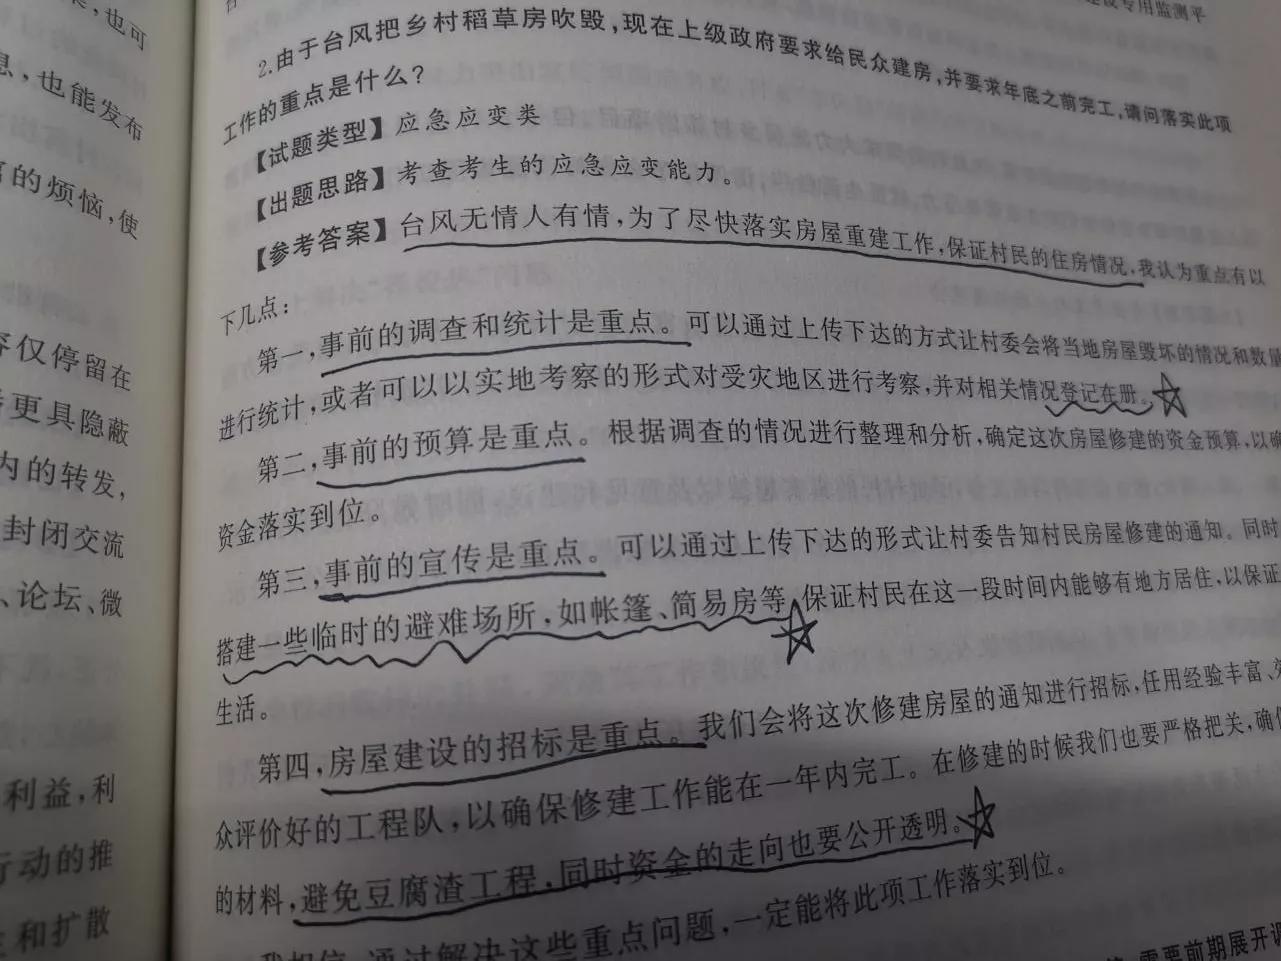 ，也可
息，也能发布
的烦恼，使
容仅停留在
更具隐蔽
内的转发，
封闭交流
、论坛、微
利益，利
行动的推
和扩散
专用监测平
2.由于台风把乡村稻草房吹毁，现在上级政府要求给民众建房，并要求年底之前完工，请问落实此项
工作的重点是什么？
【试题类型】应急应变类
【出题思路】考查考生的应急应变能力。
【参考答案】台风无情人有情，为了尽快落实房屋重建工作，保证村民的住房情况，我认为重点有以
下几点：
第一，事前的调查和统计是重点。可以通过上传下达的方式让村委会将当地房屋毁坏的情况和数量
进行统计，或者可以以实地考察的形式对受灾地区进行考察，并对相关情况登记在册。
第二，事前的预算是重点。根据调查的情况进行整理和分析，确定这次房屋修建的资金预算，以确
资金落实到位。
第三，事前的宣传是重点。可以通过上传下达的形式让村委告知村民房屋修建的通知。同时
搭建一些临时的避难场所，如帐篷、简易房等，保证村民在这一段时间内能够有地方居住，以保证
生活。
第四，房屋建设的招标是重点。我们会将这次修建房屋的通知进行招标，任用经验丰富、
众评价好的工程队，以确保修建工作能在一年内完工。在修建的时候我们也要严格把关，确保
的材料，避免豆腐渣工程，同时资金的走向也要公开透明。
我相信，通过解决这些重点问题，一定能将此项工作落实到位。
需要前期展开调